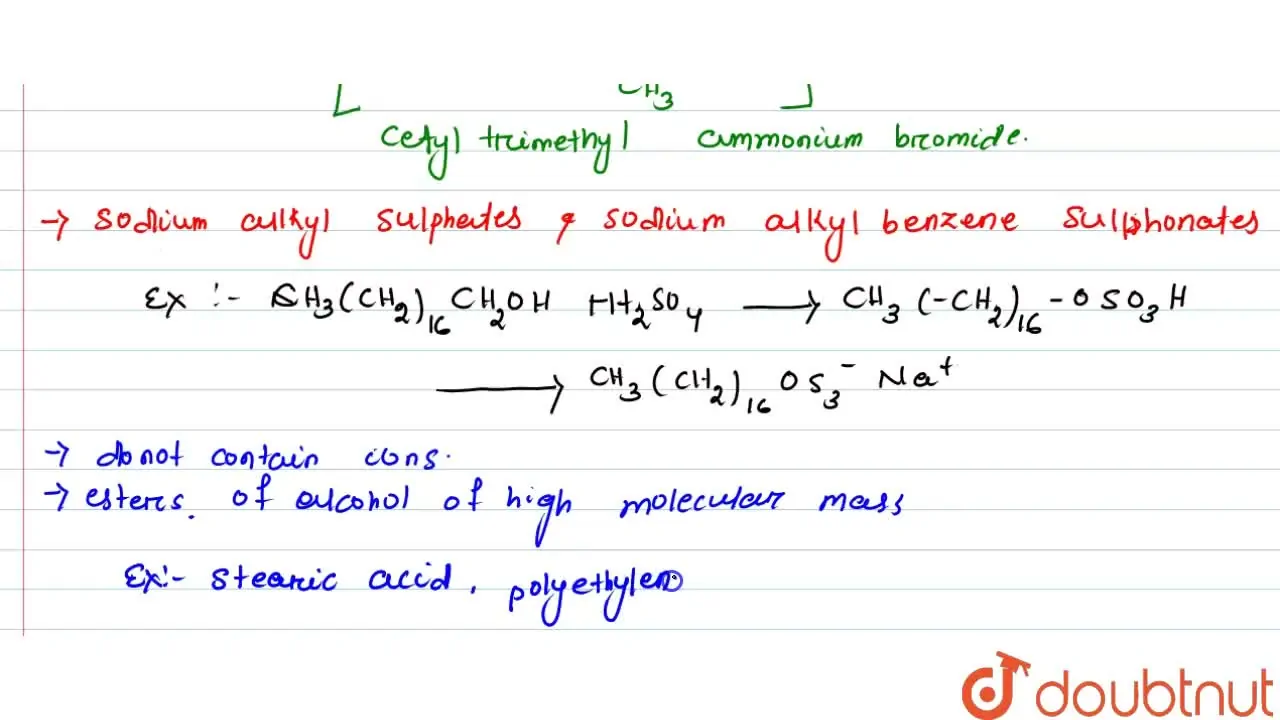 CH3
Cetyl trimethyl ammonium bromide.
→ sodium alkyl sulphates & sodium alkyl benzene sulphonates
Ex :- CH3(CH2)16 CH2OH + H2SO4 → CH3(-CH2)16-OSO3H
→ CH3(CH2)16 OS3⁻ Na⁺
→ do not contain ions.
→ esters. of alcohol of high molecular mass
Ex:- stearic acid, polyethylen
doubtnut